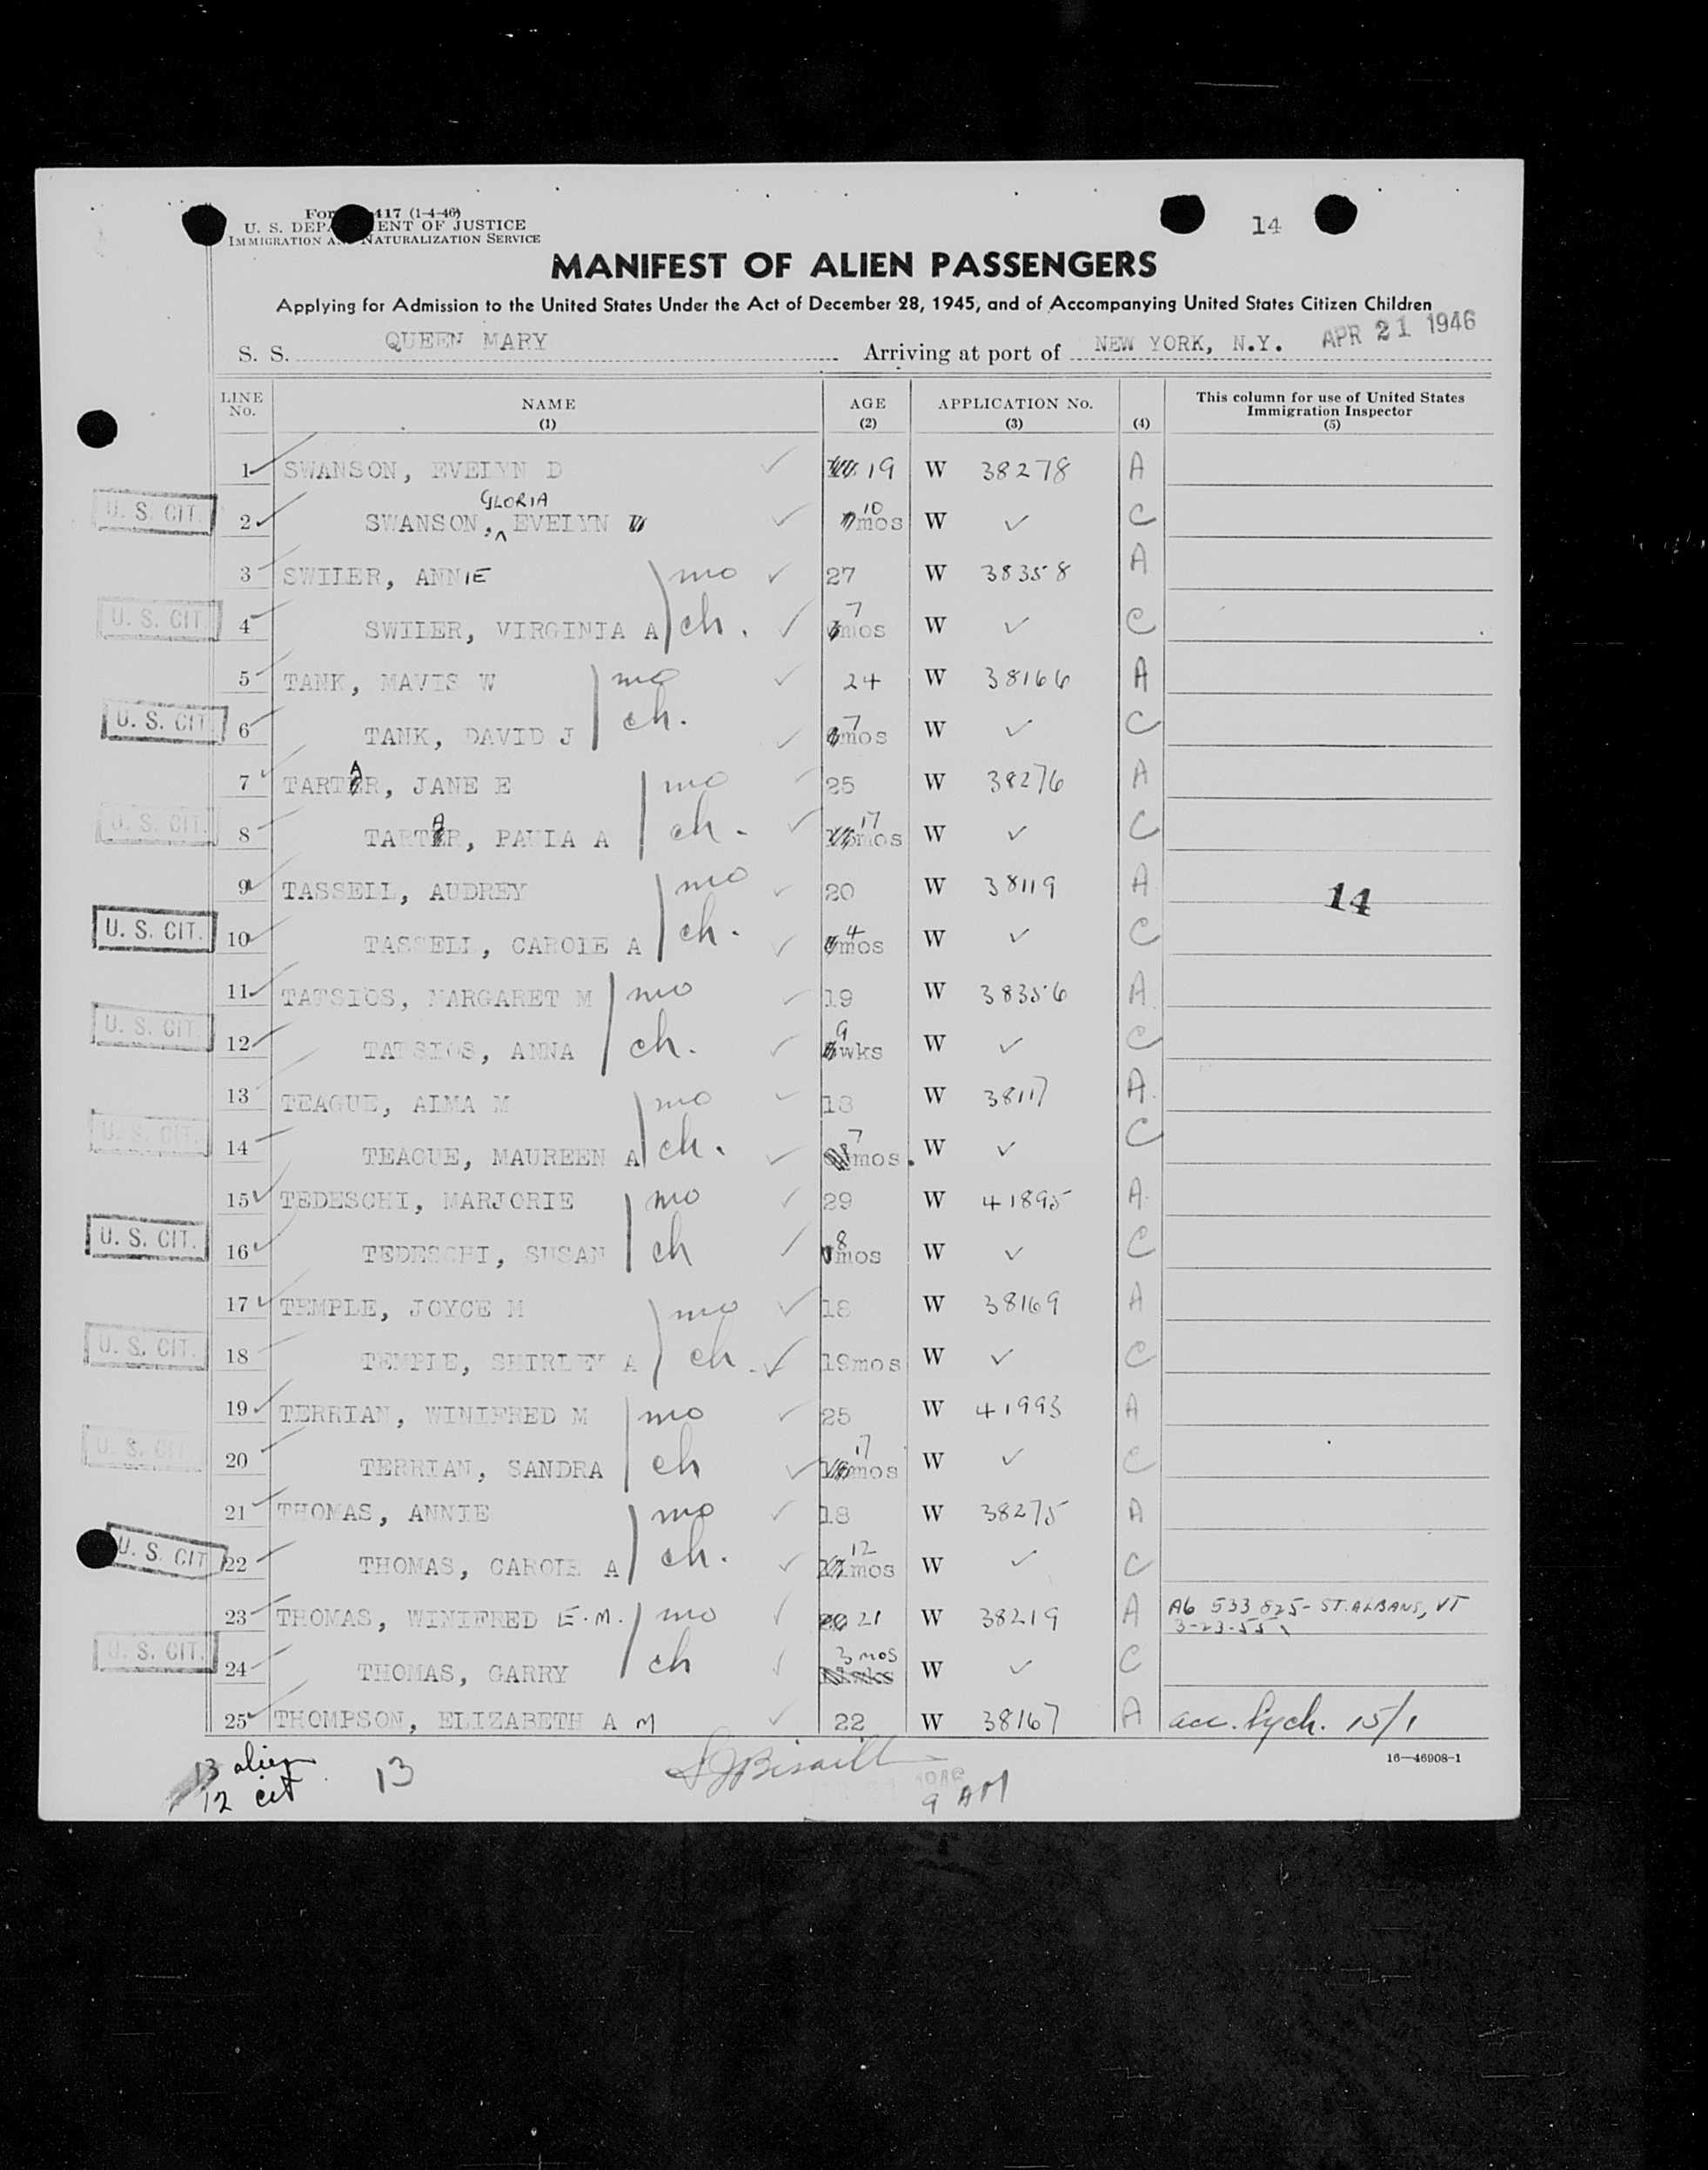 14
U. S. DEPA ENT OF JUSTICE
417 (1-4-46)
IMMIGRATION A NATURALIZATION SERVICE
MANIFEST OF ALIEN PASSENGERS
Applying for Admission to the United States Under the Act of December 28, 1945, and of Accompanying United States Citizen Children
S. S. QUEEN MARY Arriving at port of NEW YORK, N.Y. APR 21 1946
LINE No. NAME (1) AGE (2) APPLICATION No. (3) (4) This column for use of United States Immigration Inspector (5)
1 SWANSON, EVELYN D 19 W 38278 A
U. S. CIT. 2 SWANSON, GLORIA EVELYN 10 mos W ✓ C
3 SWILER, ANNIE mo 27 W 38358 A
U. S. CIT. 4 SWILER, VIRGINIA A ch. 7 mos W ✓ C
5 TANK, MAVIS W mo 24 W 38166 A
U. S. CIT 6 TANK, DAVID J ch. 7 mos W ✓ C
7 TARTAR, JANE E mo 25 W 38276 A
U. S. CIT. 8 TARTAR, PAULA A ch. 17 mos W ✓ C
9 TASSELL, AUDREY mo 20 W 38119 A 14
U. S. CIT. 10 TASSELL, CAROLE A ch. 4 mos W ✓ C
11 TATSIOS, MARGARET M mo 19 W 38356 A
U. S. CIT. 12 TATSIOS, ANNA ch. 9 wks W ✓ C
13 TEAGUE, ALMA M mo 18 W 38117 A
U. S. CIT. 14 TEAGUE, MAUREEN A ch. 7 mos. W ✓ C
15 TEDESCHI, MARJORIE mo 29 W 41895 A
U. S. CIT. 16 TEDESCHI, SUSAN ch 8 mos W ✓ C
17 TEMPLE, JOYCE M mo 18 W 38169 A
U. S. CIT. 18 TEMPLE, SHIRLEY A ch. 19mos W ✓ C
19 TERRIAN, WINIFRED M mo 25 W 41993 A
U. S. CIT 20 TERRIAN, SANDRA ch 17 mos W ✓ C
21 THOMAS, ANNIE mo 18 W 38275 A
U. S. CIT 22 THOMAS, CAROLE A ch. 12 mos W ✓ C
23 THOMAS, WINIFRED E.M. mo 21 W 38219 A A6 533 825- ST. ALBANS, VT
3-23-55
U. S. CIT. 24 THOMAS, GARRY ch 3 mos W ✓ C
25 THOMPSON, ELIZABETH A M 22 W 38167 A acc. Psych. 15/1
16—46908-1
13 alien 13
12 cit
9 AM